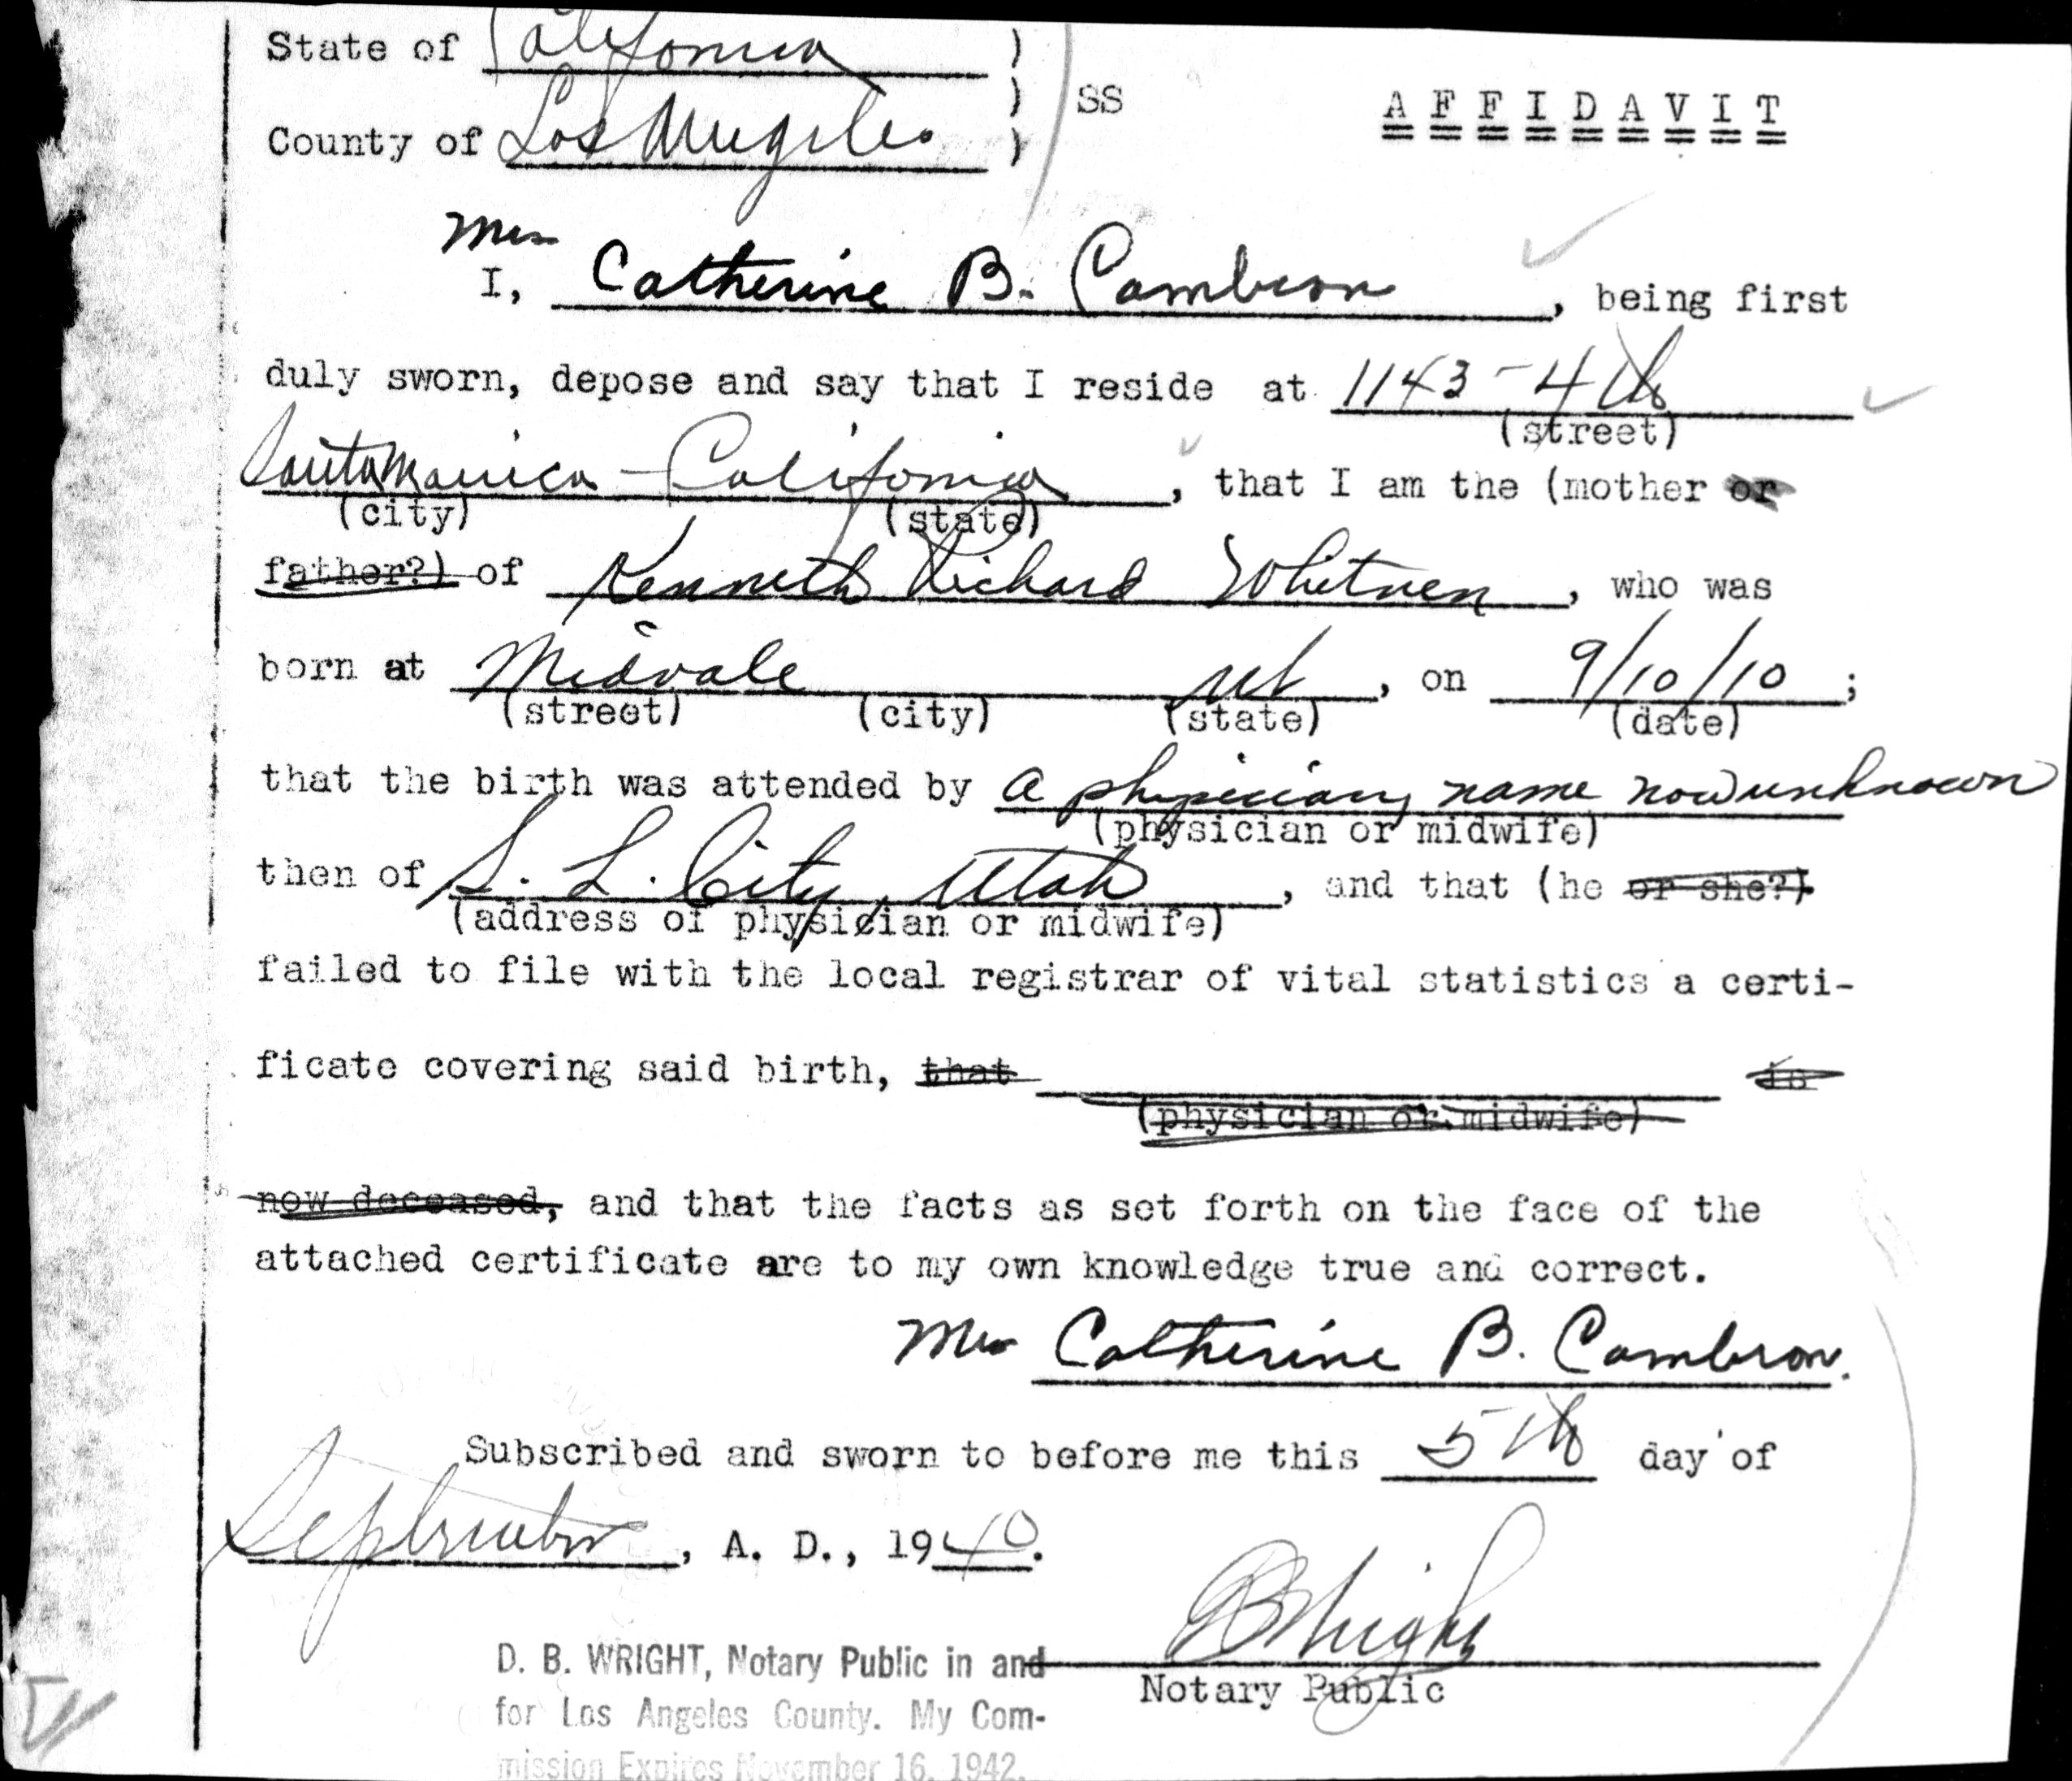 State of California )
) SS A F F I D A V I T
County of Los Angeles )
Mrs
I, Catherine B. Cambron, being first
duly sworn, depose and say that I reside at 1143 - 4th
(street)
Santa Monica - California, that I am the (mother or
(city) (state)
father?) of Kenneth Richard Whitney, who was
born at Midvale Ut, on 9/10/10;
(street) (city) (state) (date)
that the birth was attended by a physician, name now unknown
(physician or midwife)
then of S. L. City, Utah, and that (he or she?)
(address of physician or midwife)
failed to file with the local registrar of vital statistics a certi-
ficate covering said birth, that is
(physician or midwife)
now deceased, and that the facts as set forth on the face of the
attached certificate are to my own knowledge true and correct.
Mrs Catherine B. Cambron.
Subscribed and sworn to before me this 5th day of
September, A. D., 1940.
DB Wright
D. B. WRIGHT, Notary Public in and
Notary Public
for Los Angeles County. My Com-
mission Expires November 16, 1942.